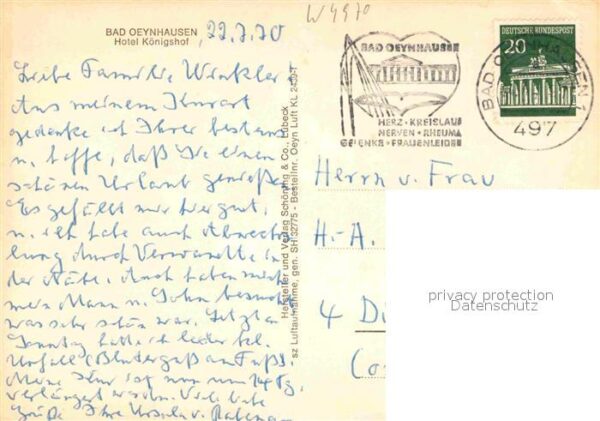 BAD OEYNHAUSEN
Hotel Königshof
22.7.70
W 4970
Liebe Familie Winkler!
Aus meinem Kurort
gedenke ich Ihrer bestens
u. hoffe, daß Sie einen
schönen Urlaub genoßen.
Es gefällt mir hier gut,
u. ich habe auch Abwechs-
lung durch Verwandte in
der Nähe. Auch haben mich
mein Mann u. Sohn besucht
was sehr schön war. Letzten
Sonntag hatte ich leider kl.
Unfall (Bluterguß am Fuß).
Meine Kur ist nun um 14 Tg.
verlängert worden. Viele liebe
Grüße Ihre Ursula v.
Hersteller und Verlag Schöning & Co., Lübeck
sz Luftaufnahme, gen. SH 32775 - Bestellnr. Oeyn Luft KL 2439
BAD OEYNHAUSEN
HERZ · KREISLAUF
NERVEN · RHEUMA
GELENKE · FRAUENLEIDEN
DEUTSCHE BUNDESPOST
20
BAD OEYNHAUSEN 1
497
Herrn u. Frau
H.-A.
4 D
privacy protection
Datenschutz